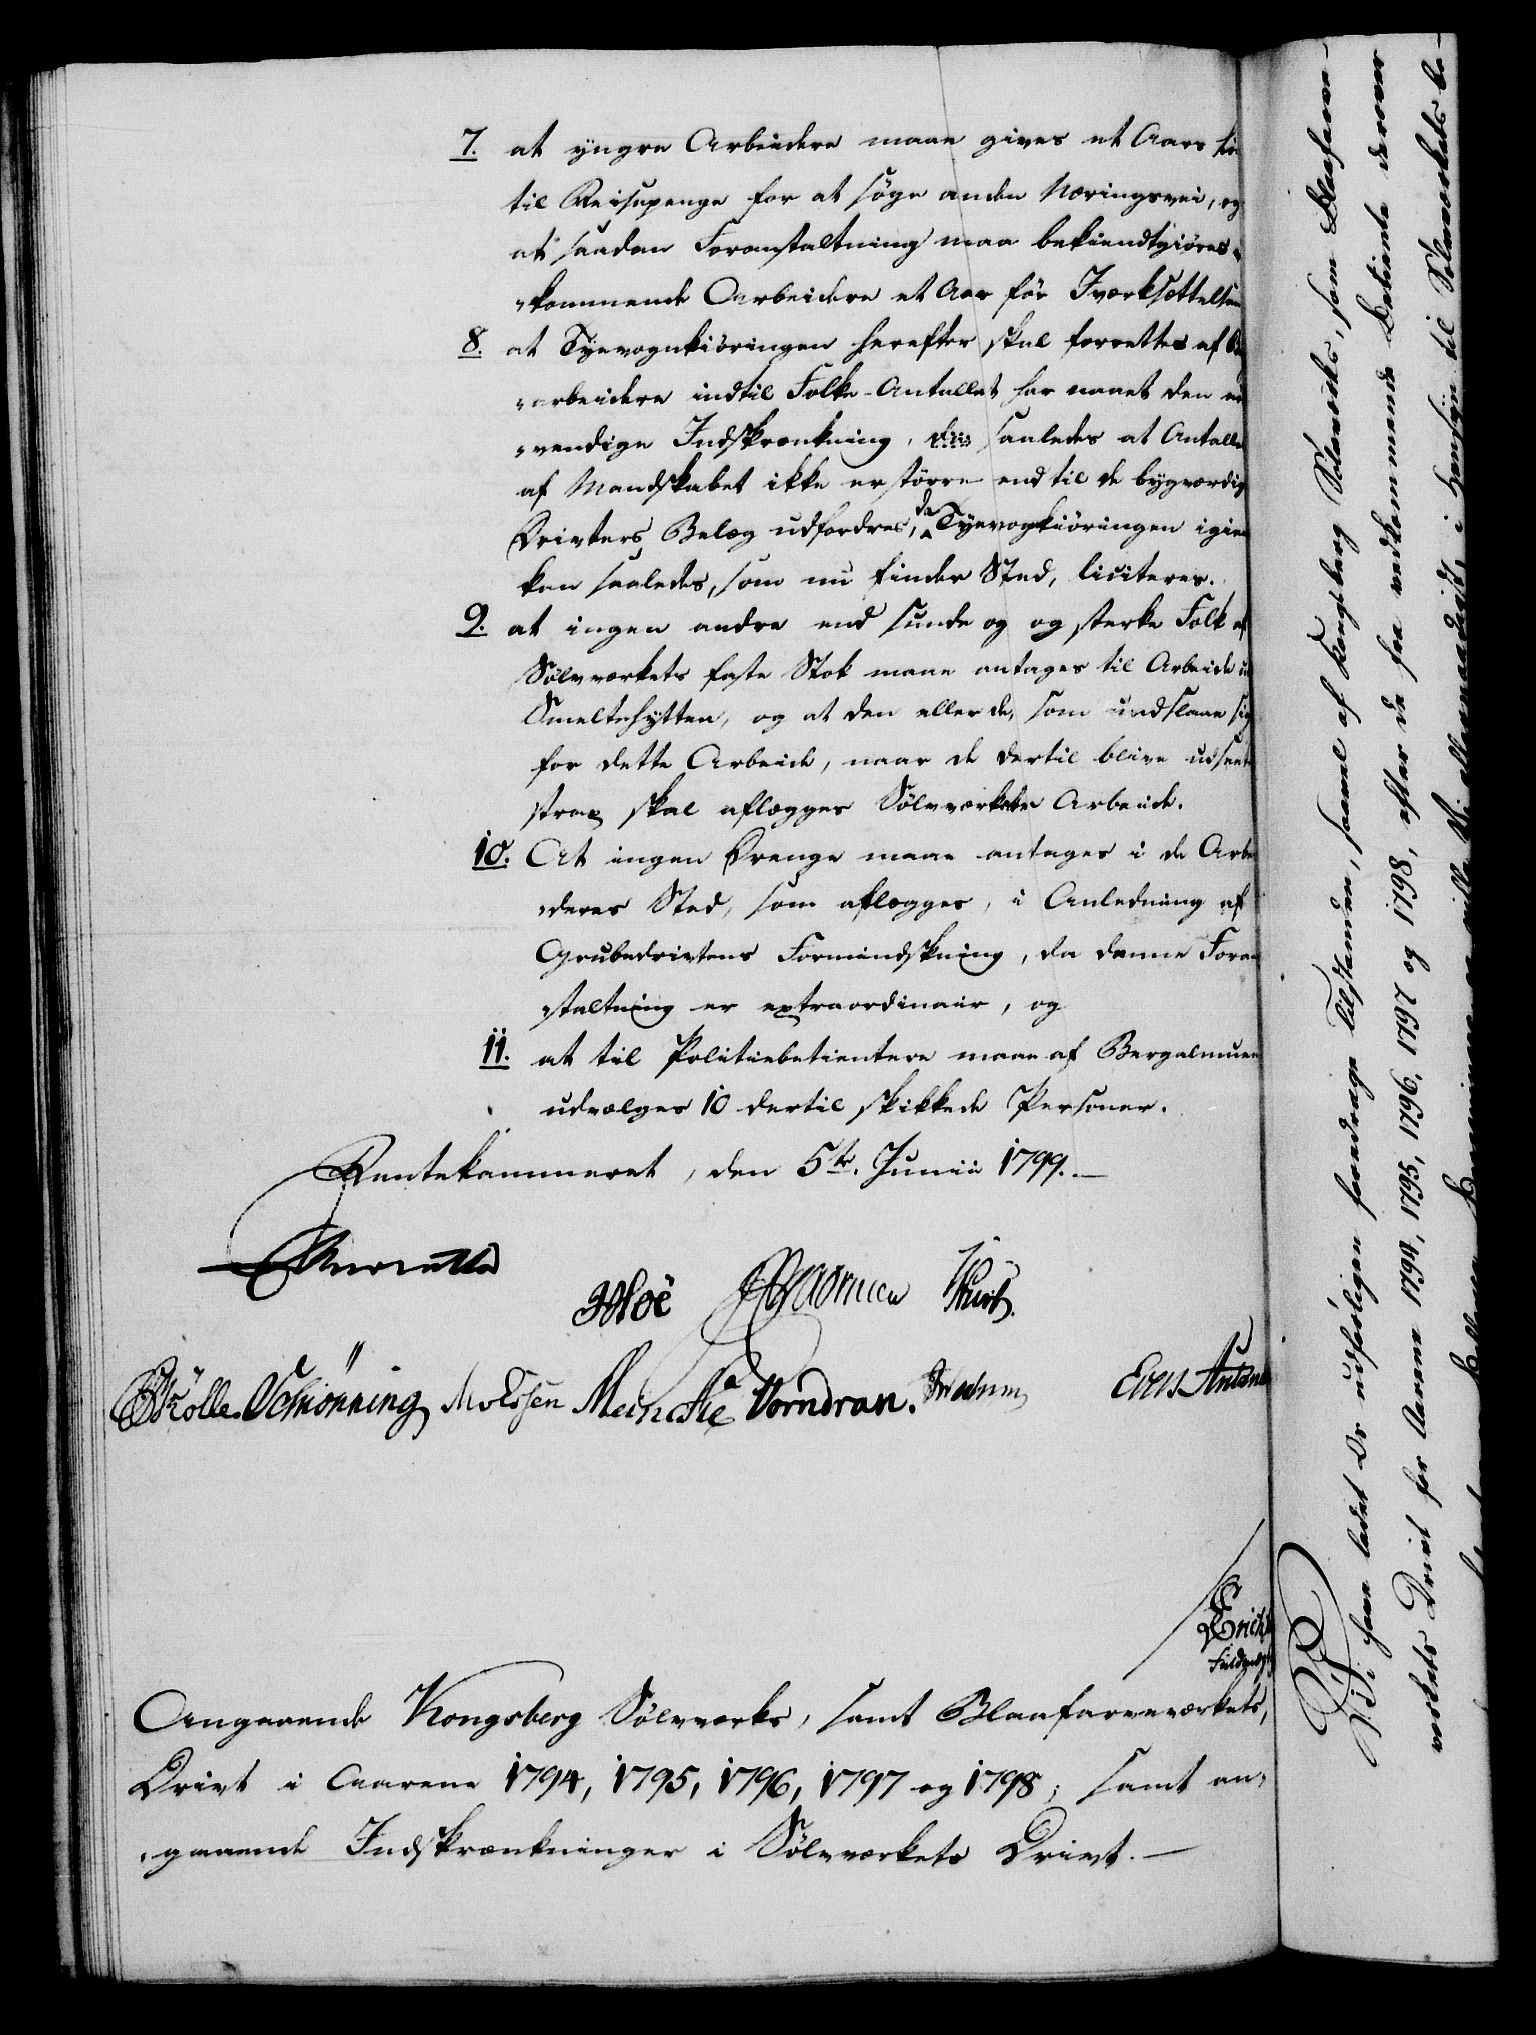 7. at yngre Arbeidere maae gives et Aars
til Reisepenge for at söge anden Næringsvei, og
at saadan Foranstaltning maa bekiendtgiöres
„kommende Arbeidere et Aar för Iværksættelsen
8. at Tyevognkiöringen herefter skal forrettes af
„arbeidere indtil Folke-Antallet har naaet den
„vendige Indskrænkning, saaledes at Antallet
af Mandskabet ikke er större end til de bygværdige
Drivters Belæg udfordres, da Tyevogkiöringen igien
kan saaledes, som nu finder Sted, liciteres.
9. at ingen andre end sunde og og sterke Folk af
Sölvværkets faste Stok maae antages til Arbeide
Smeltehytten, og at den eller de, som undslaae sig
for dette Arbeide, naar de dertil blive udseete
strax skal aflægges Sölvværkets Arbeide.
10. At ingen Drenge maae antages i de Arbei
„deres Sted, som aflægges, i Anledning af
Grubedrivtens Formindskning, da denne Foran
staltning er extraordinair, og
11. at til Politiebetientere maae af Bergalmuen
udvælges 10 dertil skikkede Personer.
Rentekammeret, den 5te Junii 1799.
Hoë
Kölle. Schiönning Meincke Vorndran.
Angaaende Kongsberg Sölvværks, samt Blaafarveværkets,
Drivt i Aarene 1794, 1795, 1796, 1797 og 1798; samt an„
„gaaende Indskrænkninger i Sölvværkets Drivt.
Vi have ladet Os udförligen foredrage Tilstanden, saavel af Kongsberg Sölvværks, som Blaafarve-
værkets Drivt for Aarene 1794, 1795, 1796, 1797 og 1798, efter de fra vedkommende Betiente derover